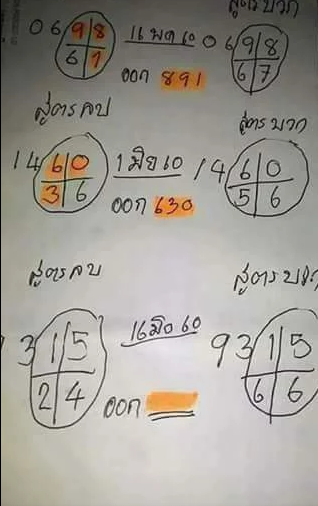 สูตรบวก
0 6 9 8 16 พค 60 0 6 9 8
6 7 6 7
ออก 891
สูตรลบ สูตรบวก
1 4 6 0 1 มิย 60 1 4 6 0
3 6 5 6
ออก 630
สูตรลบ สูตรบวก
3 1 5 16 มิย 60 9 3 1 5
2 4 6 6
ออก